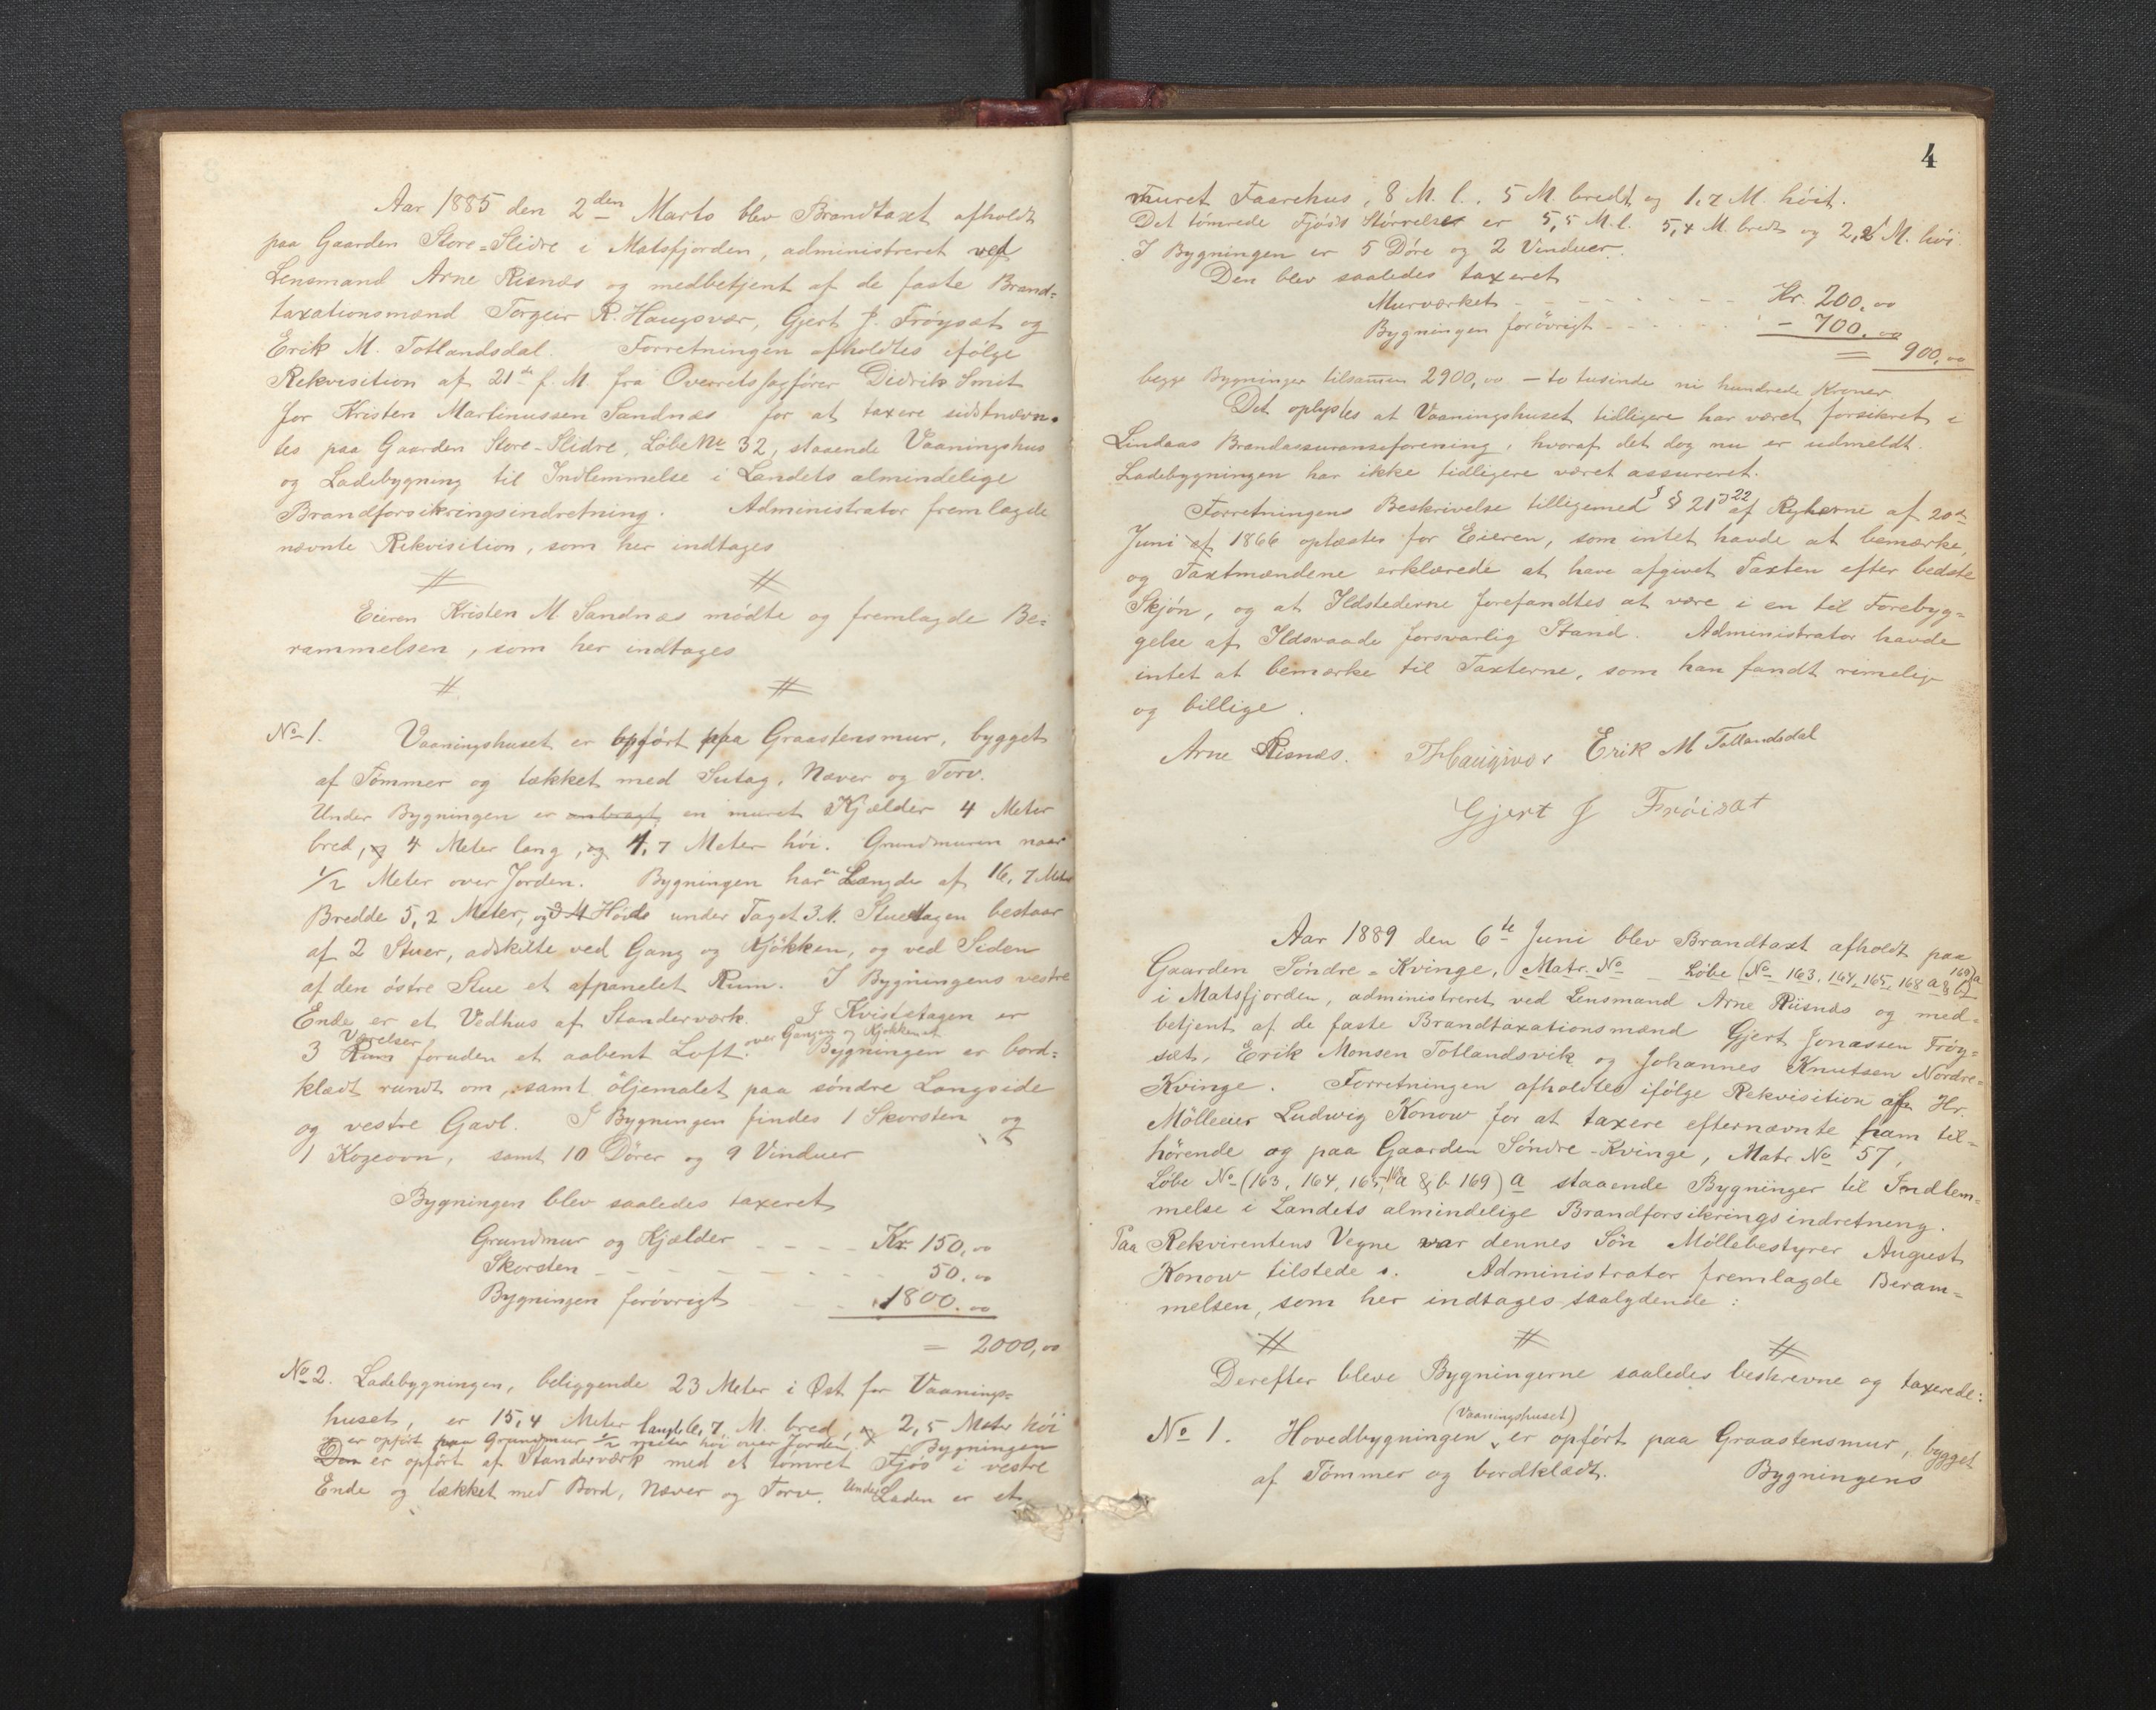 Aar 1885 den 2den Marts blev Brandtaxt afholdt
paa Gaarden Store-Slidre i Matsfjorden, administreret ved
Lensmand Arne Risnæs og medbetjent af de faste Brand-
taxationsmænd Torgeir R. Haugsvær, Gjert J. Fröyset og
Erik M. Totlandsdal. Forretningen afholdtes ifölge
Rekvisition af 21de f. M. fra Overretssagförer Didrik Smit
for Kristen Martinussen Sandnæs for at taxere sidstnævn-
tes paa Gaarden Store-Slidre, Löbe No 32, staaende Vaaningshus
og Ladebygning til Indlemmelse i Landets almindelige
Brandforsikringsindretning. Administrator fremlagde
nævnte Rekvisition, som her indtages
# #
Eieren Kristen M Sandnæs mödte og fremlagde Be-
rammelsen, som her indtages
# #
No 1. Vaaningshuset er opfört paa Graastensmur, bygget
af Tömmer og tækket med Sutag, Næver og Torv.
Under Bygningen er anbragt en muret Kjælder 4 Meter
bred, og 4 Meter lang, og 1,7 Meter höi. Grundmuren naar
1/2 Meter over Jorden. Bygningen har en Længde af 16,7 Meter
Bredde 5,2 Meter, og Höide under Taget 3 M. Stueetagen bestaar
af 2 Stuer, adskilte ved Gang og Kjökken, og ved Siden
af den östre Stue et afpanelet Rum. I Bygningens vestre
Ende er et Vedhus af Standerværk. I Kvistetagen er
Værelser over Gangen og Kjökkenet
3 Rum foruden et aabent Loft. Bygningen er bord-
klædt rundt om, samt öljemalet paa söndre Langside
og vestre Gavl. I Bygningen findes 1 Skorsten og
1 Kogeovn, samt 10 Dörer og 9 Vinduer
Bygningen blev saaledes taxeret
Grundmur og Kjælder - - - - Kr. 150,00
Skorsten - - - - - - - - 50.00
Bygningen forövrigt - 1800.00
= 2000,00
No 2. Ladebygningen, beliggende 23 Meter i Öst for Vaanings-
huset, er 15,4 Meter lang 6,7 M. bred, og 2,5 Meter höi
og er opfört paa Grundmur 1/2 meter höi over Jorden. Bygningen
Den er opfört af Standerværk med et tömret Fjös i vestre
Ende og tækket med Bord, Næver og Torv. Under Laden er et
4
muret Faarehus, 8 M. l., 5 M. bredt og 1,7 M. höit.
Det tömrede Fjös's Störrelse er 5,5 M. l. 5,4 M. bredt og 2,2 M. höi.
I Bygningen er 5 Döre og 2 Vinduer.
Den blev saaledes taxeret
Murværket - - - - - - - - Kr. 200,00
Bygningen forövrigt - - - - - 700.00
= 900,00
begge Bygninger tilsammen 2900,00 - to tusinde ni hundrede Kroner.
Det oplystes at Vaaningshuset tidligere har været forsikret i
Lindaas Brandassuranseforening, hvoraf det dog nu er udmeldt.
Ladebygningen har ikke tidligere været assureret.
Forretningens Beskrivelse tilligemed § § 21 & 22 af Reglerne af 20de
Juni af 1866 oplæstes for Eieren, som intet havde at bemærke,
og Taxtmændene erklærede at have afgivet Taxten efter bedste
Skjön, og at Ildstederne forefandtes at være i en til Forebyg-
gelse af Ildsvaade forsvarlig Stand. Administrator havde
intet at bemærke til Taxterne, som han fandt rimelig
og billige.
Arne Risnæs. Erik M Totlandsdal
Gjert J Fröisæt
Aar 1889 den 6te Juni blev Brandtaxt afholdt paa
Gaarden Söndre-Kvinge, Matr. No - Löbe (No 163, 164, 165, 168 a & b 169) a
i Matsfjorden, administreret ved Lensmand Arne Riisnæs og med-
betjent af de faste Brandtaxationsmænd Gjert Jonassen Fröy-
sæt, Erik Monsen Totlandsvik og Johannes Knutsen Nordre-
Kvinge. Forretningen afholdtes ifölge Rekvisition af Hr.
Mölleeier Ludwig Konow for at taxere efternævnte ham til-
hörende og paa Gaarden Söndre-Kvinge, Matr. No 57,
Löbe No (163, 164, 165, 168 a & b 169) a staaende Bygninger til Indlem-
melse i Landets almindelige Brandforsikringsindretning.
Paa Rekvirentens Vegne var dennes Sön Möllebestyrer August
Konow tilstede. Administrator fremlagde Beram-
melsen, som her indtages saalydende:
# # #
Derefter bleve Bygningerne saaledes beskrevne og taxerede:
(Vaaningshuset)
No 1. Hovedbygningen er opfört paa Graastensmur, bygget
af Tömmer og bordklædt. Bygningens